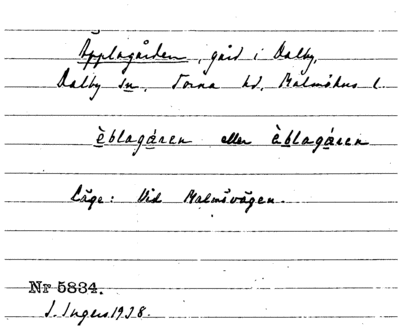 Äpplagården, gård i Dalby,
Dalby sn, Torna hd, Malmöhus l.
èblagáren eller ä̀blagáren
Läge: Vid Malmövägen.
Nr 5834.
I. Ingers 1938.